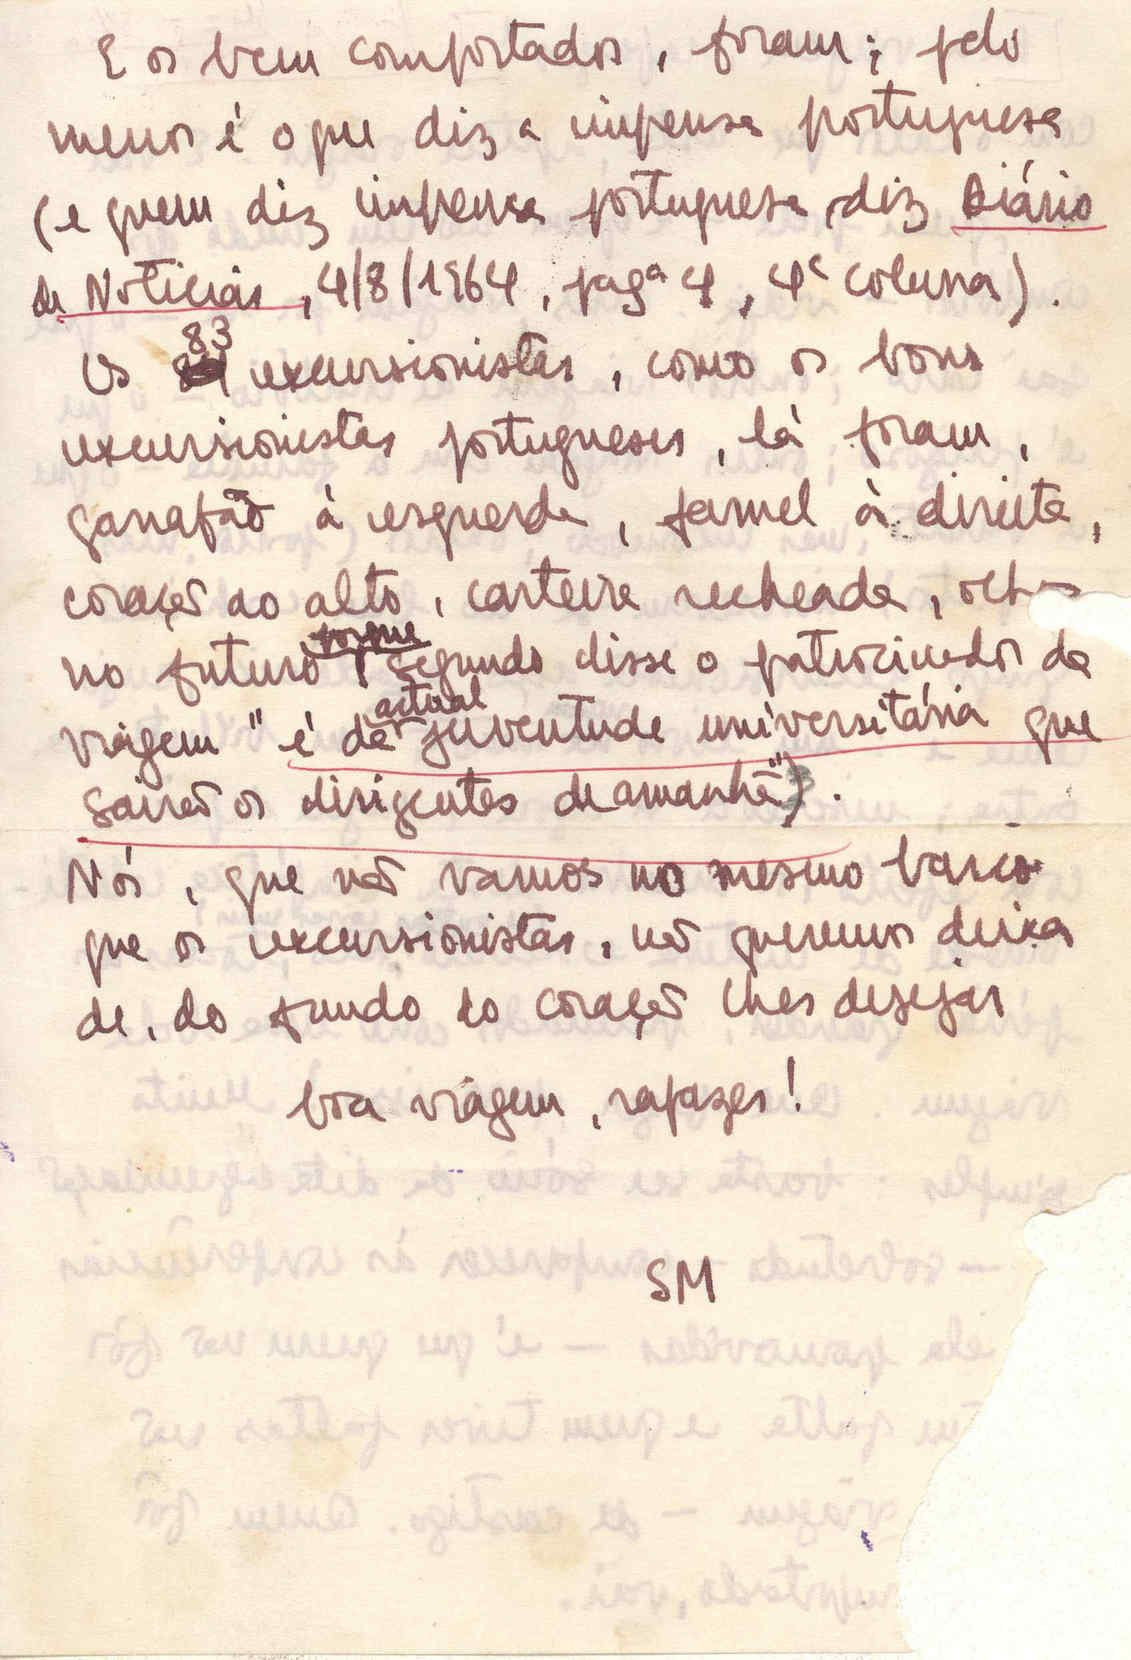 E os bem comportados, foram; pelo
menos é o que diz a imprensa portuguesa
(e quem diz imprensa portuguesa, diz Diário
de Notícias, 4/8/1964, pagª 4, 4ª coluna).
Os 83 excursionistas, como os bons
excursionistas portugueses, lá foram,
garrafão à esquerda, farnel à direita,
coração ao alto, carteira recheada, olhos
no futuro (porque segundo disse o patrocinador da
viagem "é da actual juventude universitária que
sairão os dirigentes de amanhã").
Nós, que não vamos no mesmo barco
que os excursionistas, não queremos deixar
de, do fundo do coração lhes desejar
boa viagem, rapazes!
SM